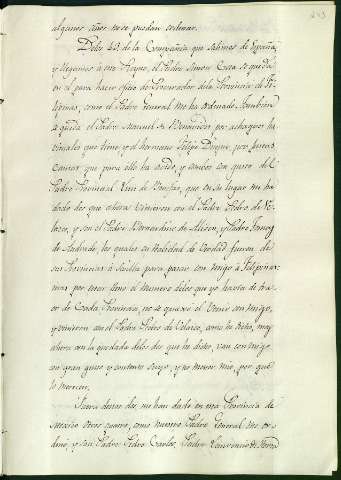 algunos años no se puedan ordenar.
Delos 43. de la Compañia que salimos de España,
y llegamos á este Reyno, el Padre Simon Cota se queda
en el para hacer oficio de Procurador dela Provincia de Fi-
lipinas, como el Padre General me ha ordenado. Tambien
se queda el Padre Manuel de Benavides por achaques ha-
vituales que tiene y el hermano Felipe Duque, por justas
causas que para ello ha avido, y ambos con gusto del
Padre Provincial Luis de que en su lugar me ha
dado dos que ahora vinieron con el Padre Pedro de Ve-
lasco, y son el Padre Bernardino de Alison, y Padre
de Andrade, los quales en realidad de verdad fueron de
sus Provincias á Sevilla para pasar con migo á Filipinas
mas por estar lleno el numero delos que yo havia de tra-
er de Cada Provincia, no se que el venir con migo,
y vinieron con el Padre Pedro de Velasco, como he dicho, mas
ahora con la quedada delos dos que he dicho, van con migo
con gran gusto y contento suyo, y no menor mio, por que
lo merecen.
Fuera destos dos, me han dado en esta Provincia de
Mexico otros cuatro, como nuestro Padre General me or-
denó, y son Padre Pedro Carlos, Padre Laurencio de